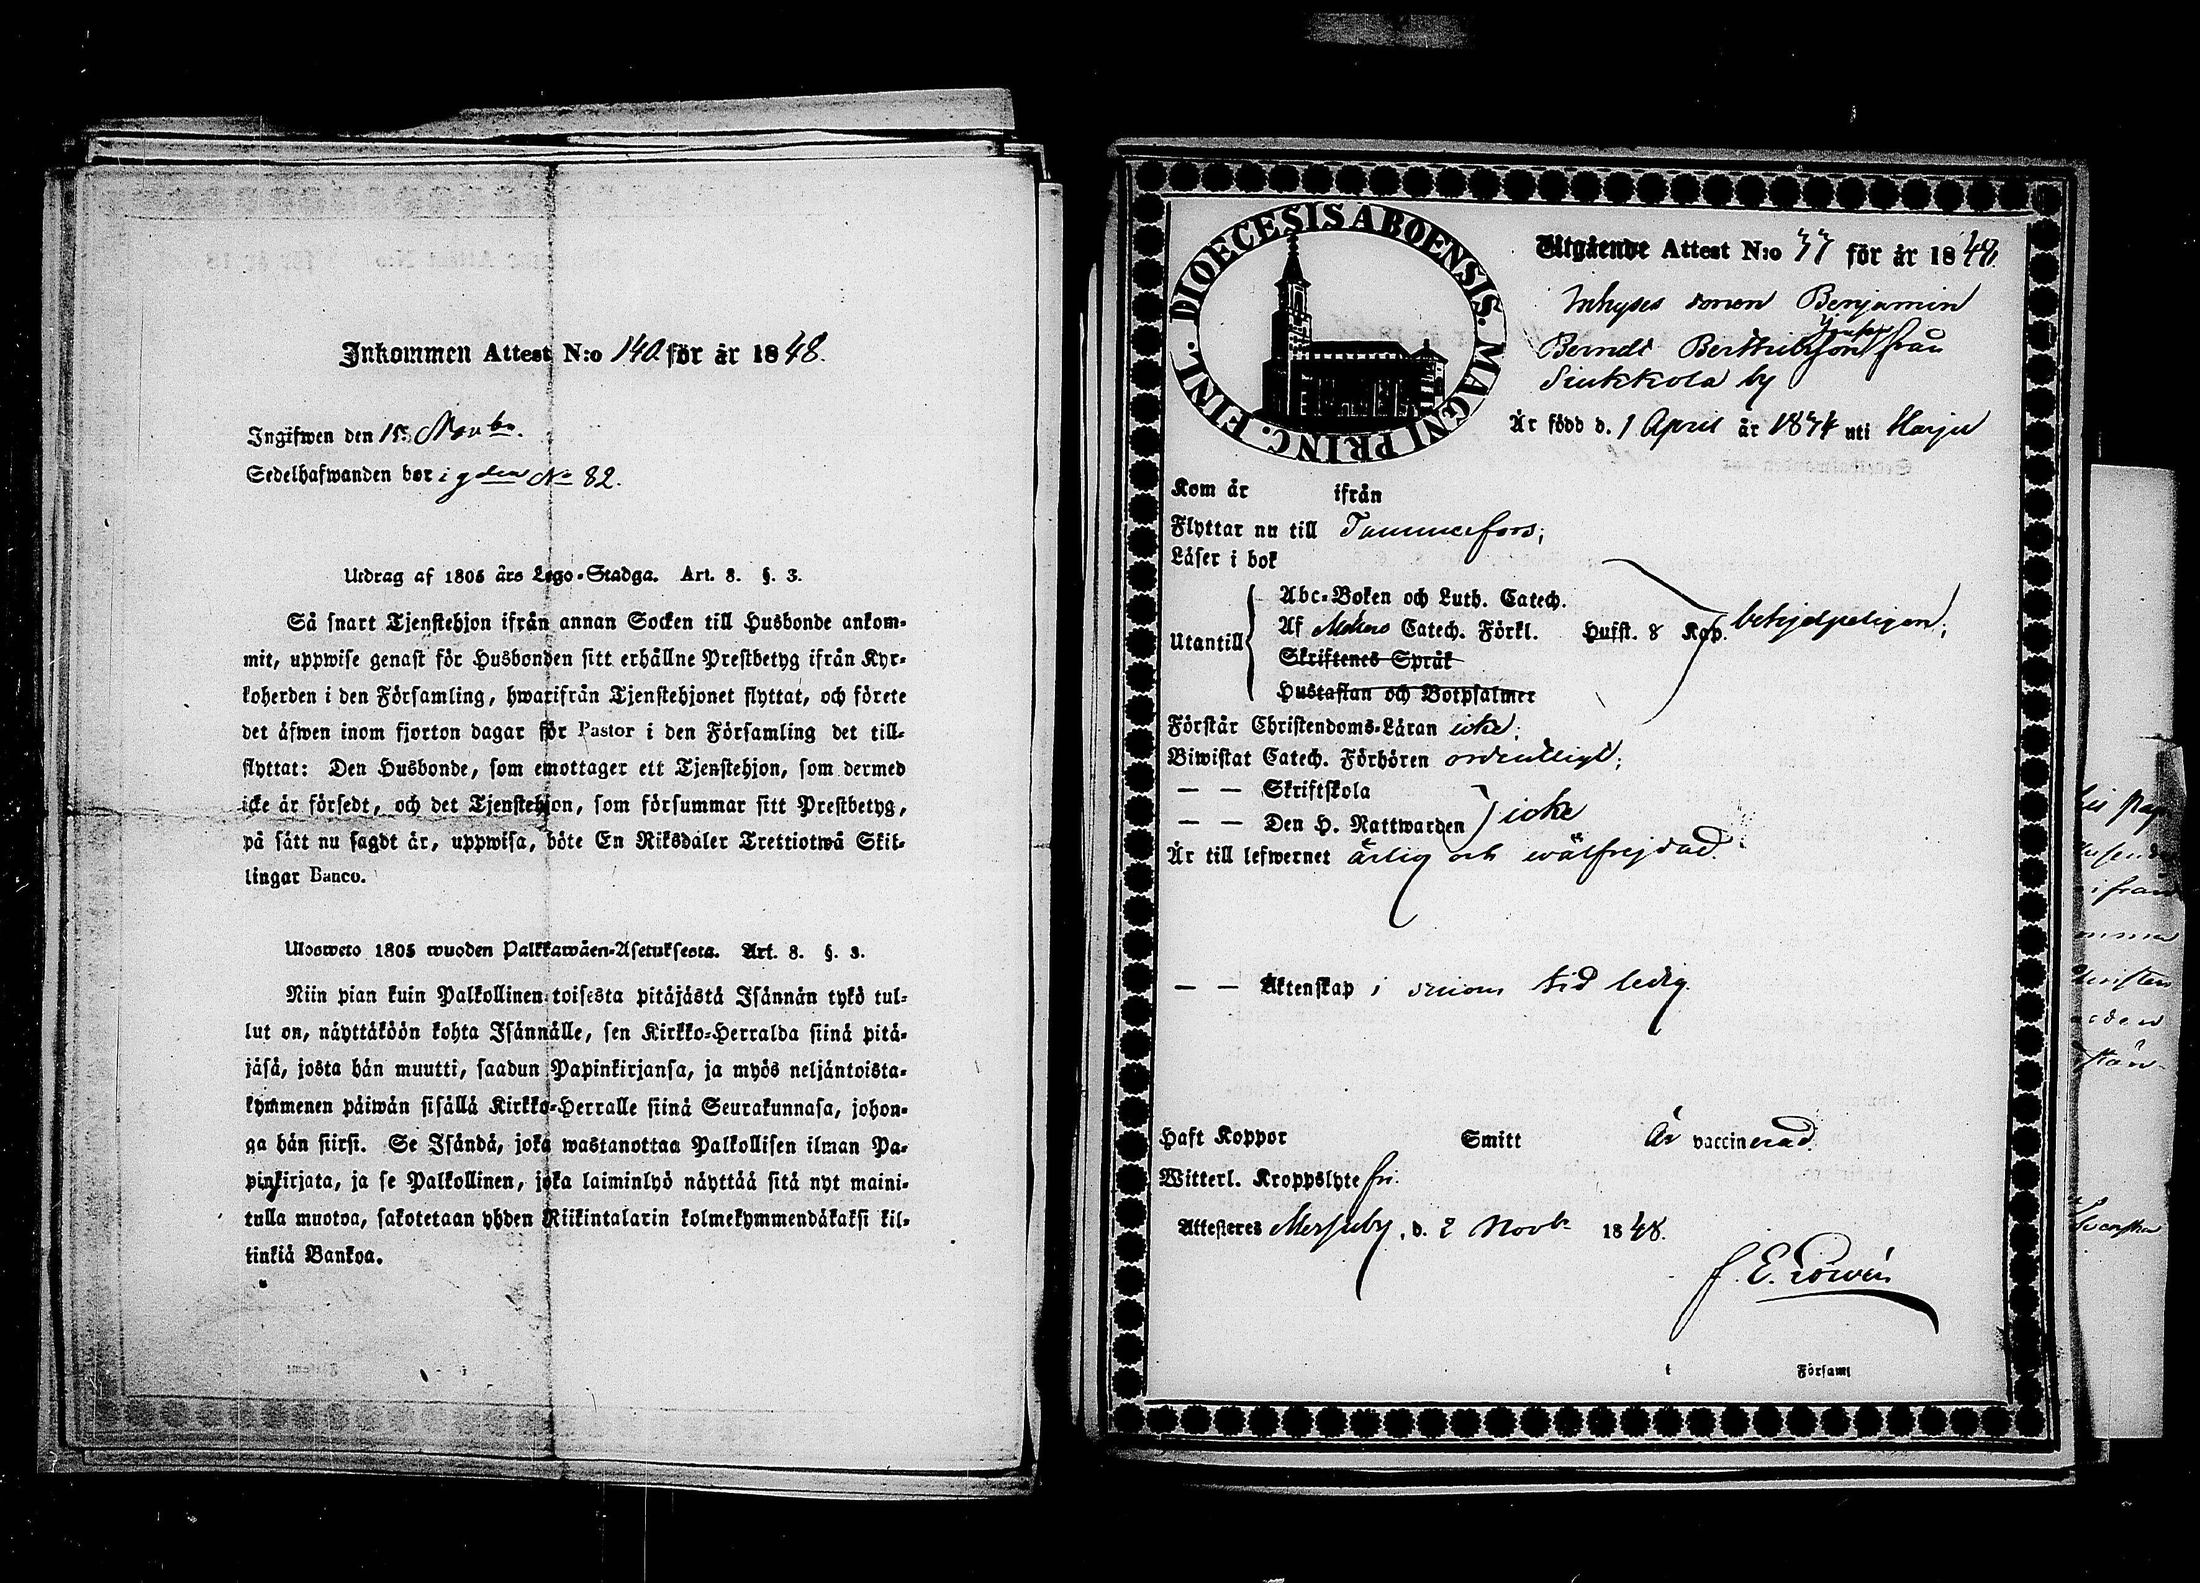 Inkommen Attest N:o 140 för år 1848.
Ingifwen den 15 Novbr.
Sedelhafwanden bor i 9 den No 82.
Utdrag af 1805 års Lego-Stadga. Art. 8. §. 3.
Så snart Tjenstehjon ifrån annan Socken till Husbonde ankom-
mit, uppwise genast för Husbonden sitt erhållne Prestbetyg ifrån Kyr-
koherden i den Församling, hwarifrån Tjenstehjonet flyttat, och förete
det äfwen inom fjorton dagar för Pastor i den Församling det till-
flyttat: Den Husbonde, som emottager ett Tjenstehjon, som dermed
icke är försedt, och det Tjenstehjon, som försummar sitt Prestbetyg,
på sätt nu sagdt är, uppwisa, böte En Riksdaler Trettiotwå Skil-
lingar Banco.
Ulosweto 1805 wuoden Palkkawäen-Asetuksesta. Art. 8. §. 3.
Niin pian kuin Palkollinen toisesta pitäjästä Isännän tykö tul-
lut on, näyttäköön kohta Isännälle, sen Kirkko-Herralda siinä pitä-
jäsä, josta hän muutti, saadun Papinkirjansa, ja myös neljäntoista-
kymmenen päiwän sisällä Kirkko-Herralle siinä Seurakunnasa, johon-
ga hän siirsi. Se Isändä, joka wastanottaa Palkollisen ilman Pa-
pinkirjata, ja se Palkollinen, joka laiminlyö näyttää sitä nyt maini-
tulla muotoa, sakotetaan yhden Riikintalarin kolmekymmendäkaksi kil-
tinkiä Bankoa.
DIOECESIS ABOENSIS. MAGNI PRINC. FINL.
Utgående Attest N:o 77 för år 1848.
Inhyses sonen Benjamin
Berndt från
by
Är född d. 1 April år uti Harju
Kom år ifrån
Flyttar nu till Tammerfors;
Läser i bok
Utantill
Abc-Boken och Luth. Catech.
Af Catech. Förkl. Husst. 8 Kap. behjelpeligen;
Skriftenes Språk
Hustaflan och Botpsalmer
Förstår Christendoms-Läran icke;
Biwistat Catech. Förhören ordentligt;
— — Skriftskola
— — Den H. Nattwarden icke
Är till lefwernet ärlig och wälfrejdad.
— — Äktenskap i tid ledig.
Haft Koppor Smitt Är vaccinerad.
Witterl. Kroppslyte fri.
Attesteres Messuby, d. 2 Novbr 1848.
i Församl